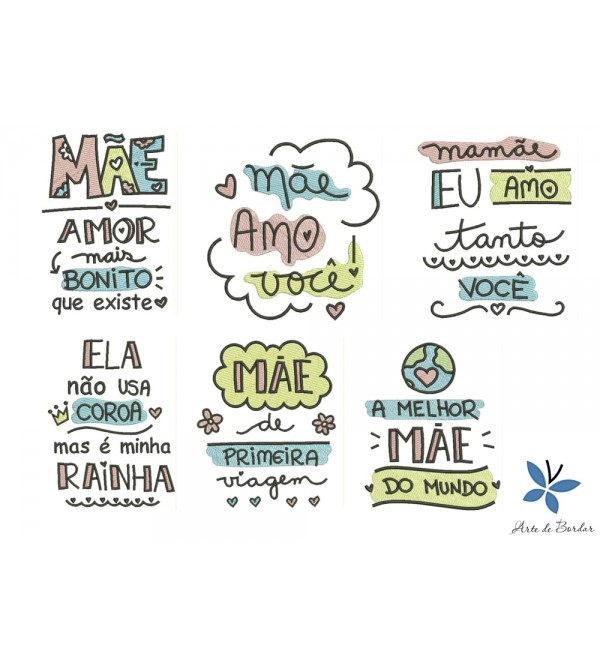 MÃE
AMOR
mais
BONITO
que existe
mãe
AMO
você!
mamãe
EU AMO
tanto
VOCÊ
ELA
não USA
COROA
mas é minha
RAINHA
MÃE
de
PRIMEIRA
viagem
A MELHOR
MÃE
DO MUNDO
Arte de Bordar